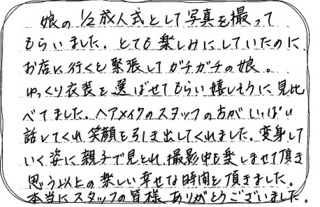 娘の1/2成人式として写真を撮って
もらいました。とても楽しみにしていたのに
お店に行くと緊張してガチガチの娘。
ゆっくり衣装を選ばせてもらい嬉しそうに見比
べてました。ヘアメイクのスタッフの方がいっぱい
話してくれ笑顔を引き出してくれました。変身して
いく姿に親子で見とれ、撮影中も楽しませて頂き
思う以上の楽しい幸せな時間を頂きました。
本当にスタッフの皆様、ありがとうございました。